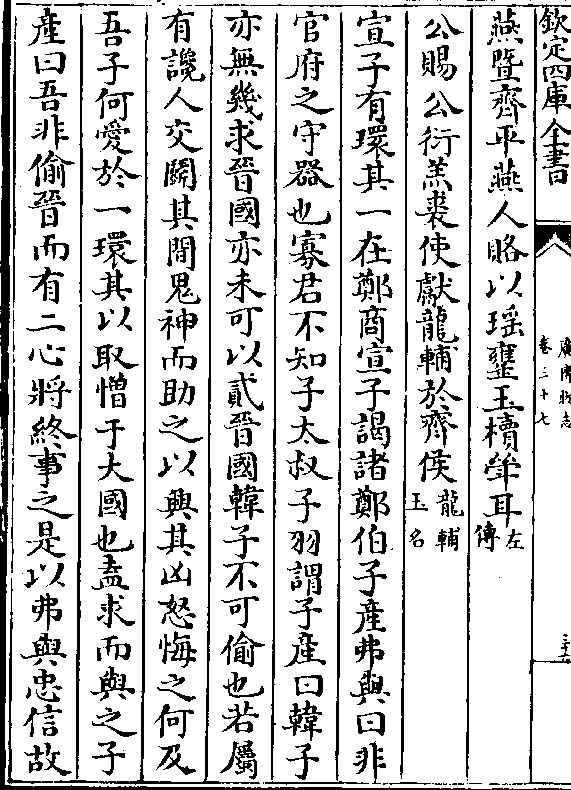 欽定四庫全書
廣博物志
卷三十七
燕暨齊平燕人賂以瑶罋玉櫝斚耳左傳
公賜公衍羔裘使獻龍輔於齊侯龍輔玉名
宣子有環其一在鄭商宣子謁諸鄭伯子產弗與曰非
官府之守器也寡君不知子太叔子羽謂子產曰韓子
亦無幾求晉國亦未可以貳晉國韓子不可偷也若屬
有讒人交鬭其間鬼神而助之以興其凶怒悔之何及
吾子何愛於一環其以取憎于大國也盍求而與之子
產曰吾非偷晉而有二心將終事之是以弗與忠信故